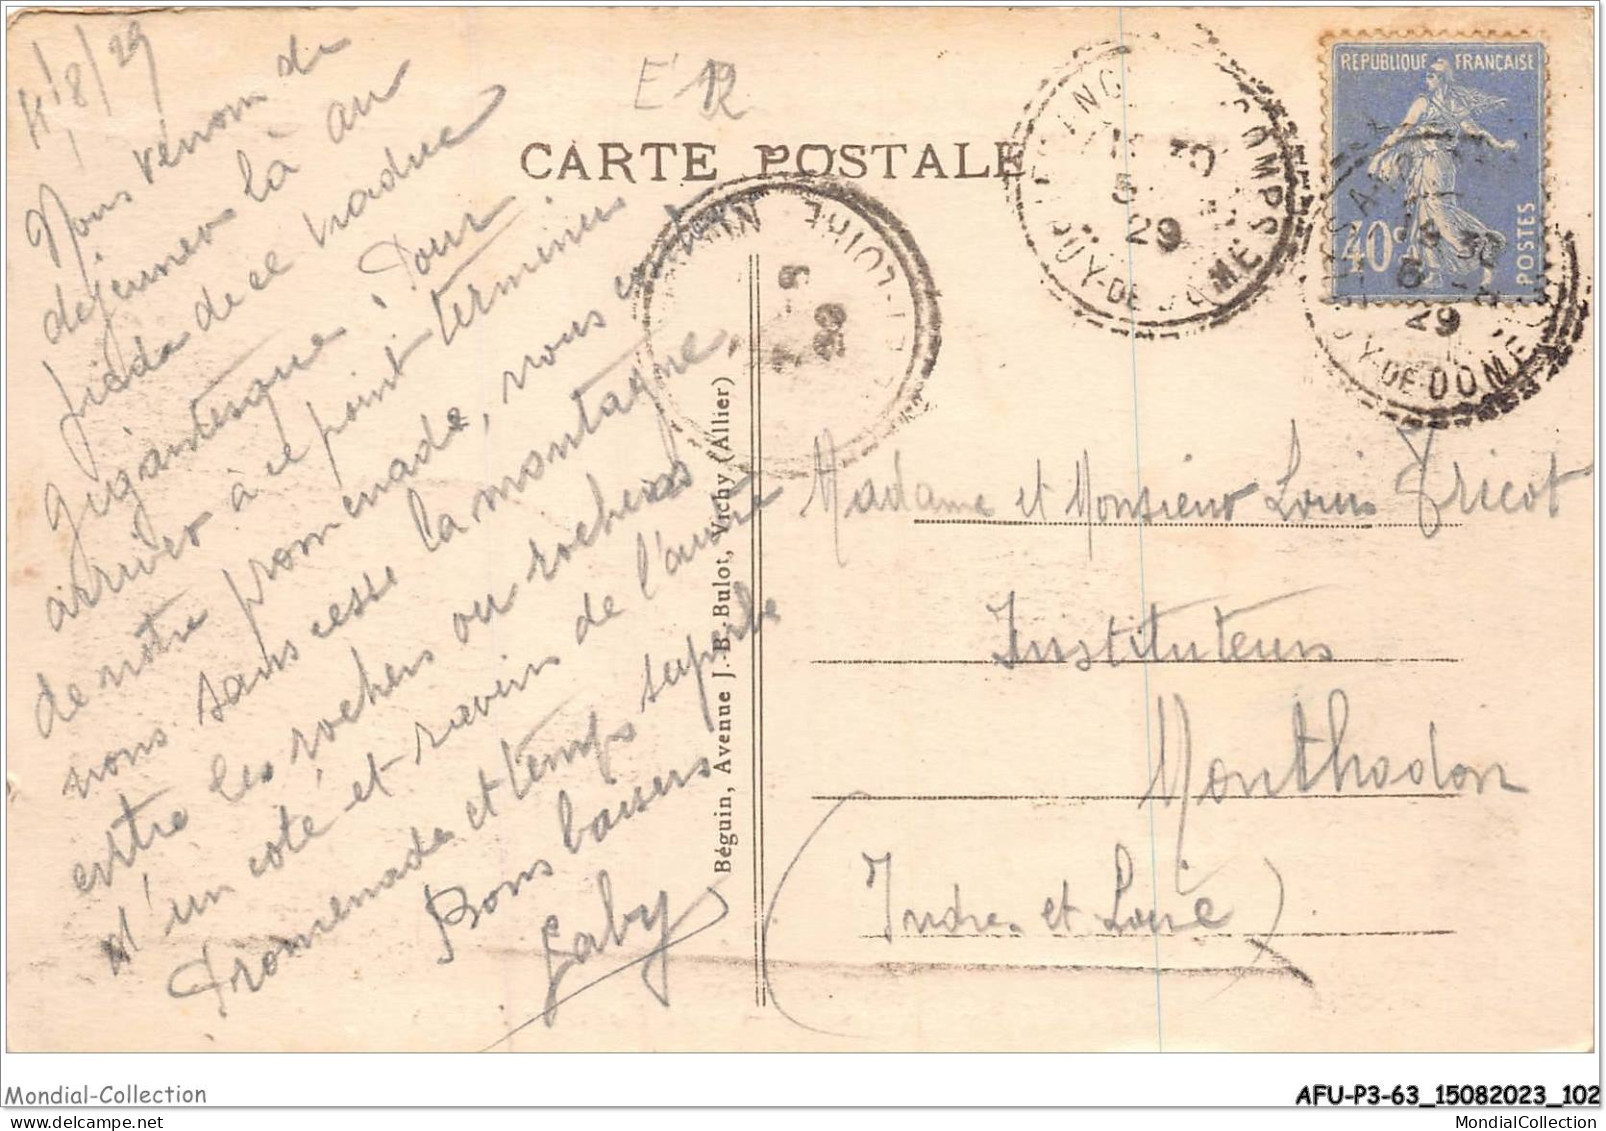 4/8/29
E 12
CARTE POSTALE
Nous venons de
déjeuner là au
pieds de ce viaduc
gigantesque ! Pour
arriver à ce point terminus
de notre promenade, nous
nous sans cesse la montagne,
entre les rochers ou rochers
d'un coté et ravin de l'autre
Promenade et temps superbe
Bons baisers
Gaby
Béguin, Avenue J.-B. Bulot, Vichy (Allier)
REPUBLIQUE FRANÇAISE
40c
POSTES
PUY-DE DOME
5
29
PUY-DE DOME
30
29
LOIRE
Madame et Monsieur Louis Tricot
Instituteurs
Monthodon
(Indre et Loire)
Mondial-Collection
AFU-P3-63_15082023_102
MondialCollection.com